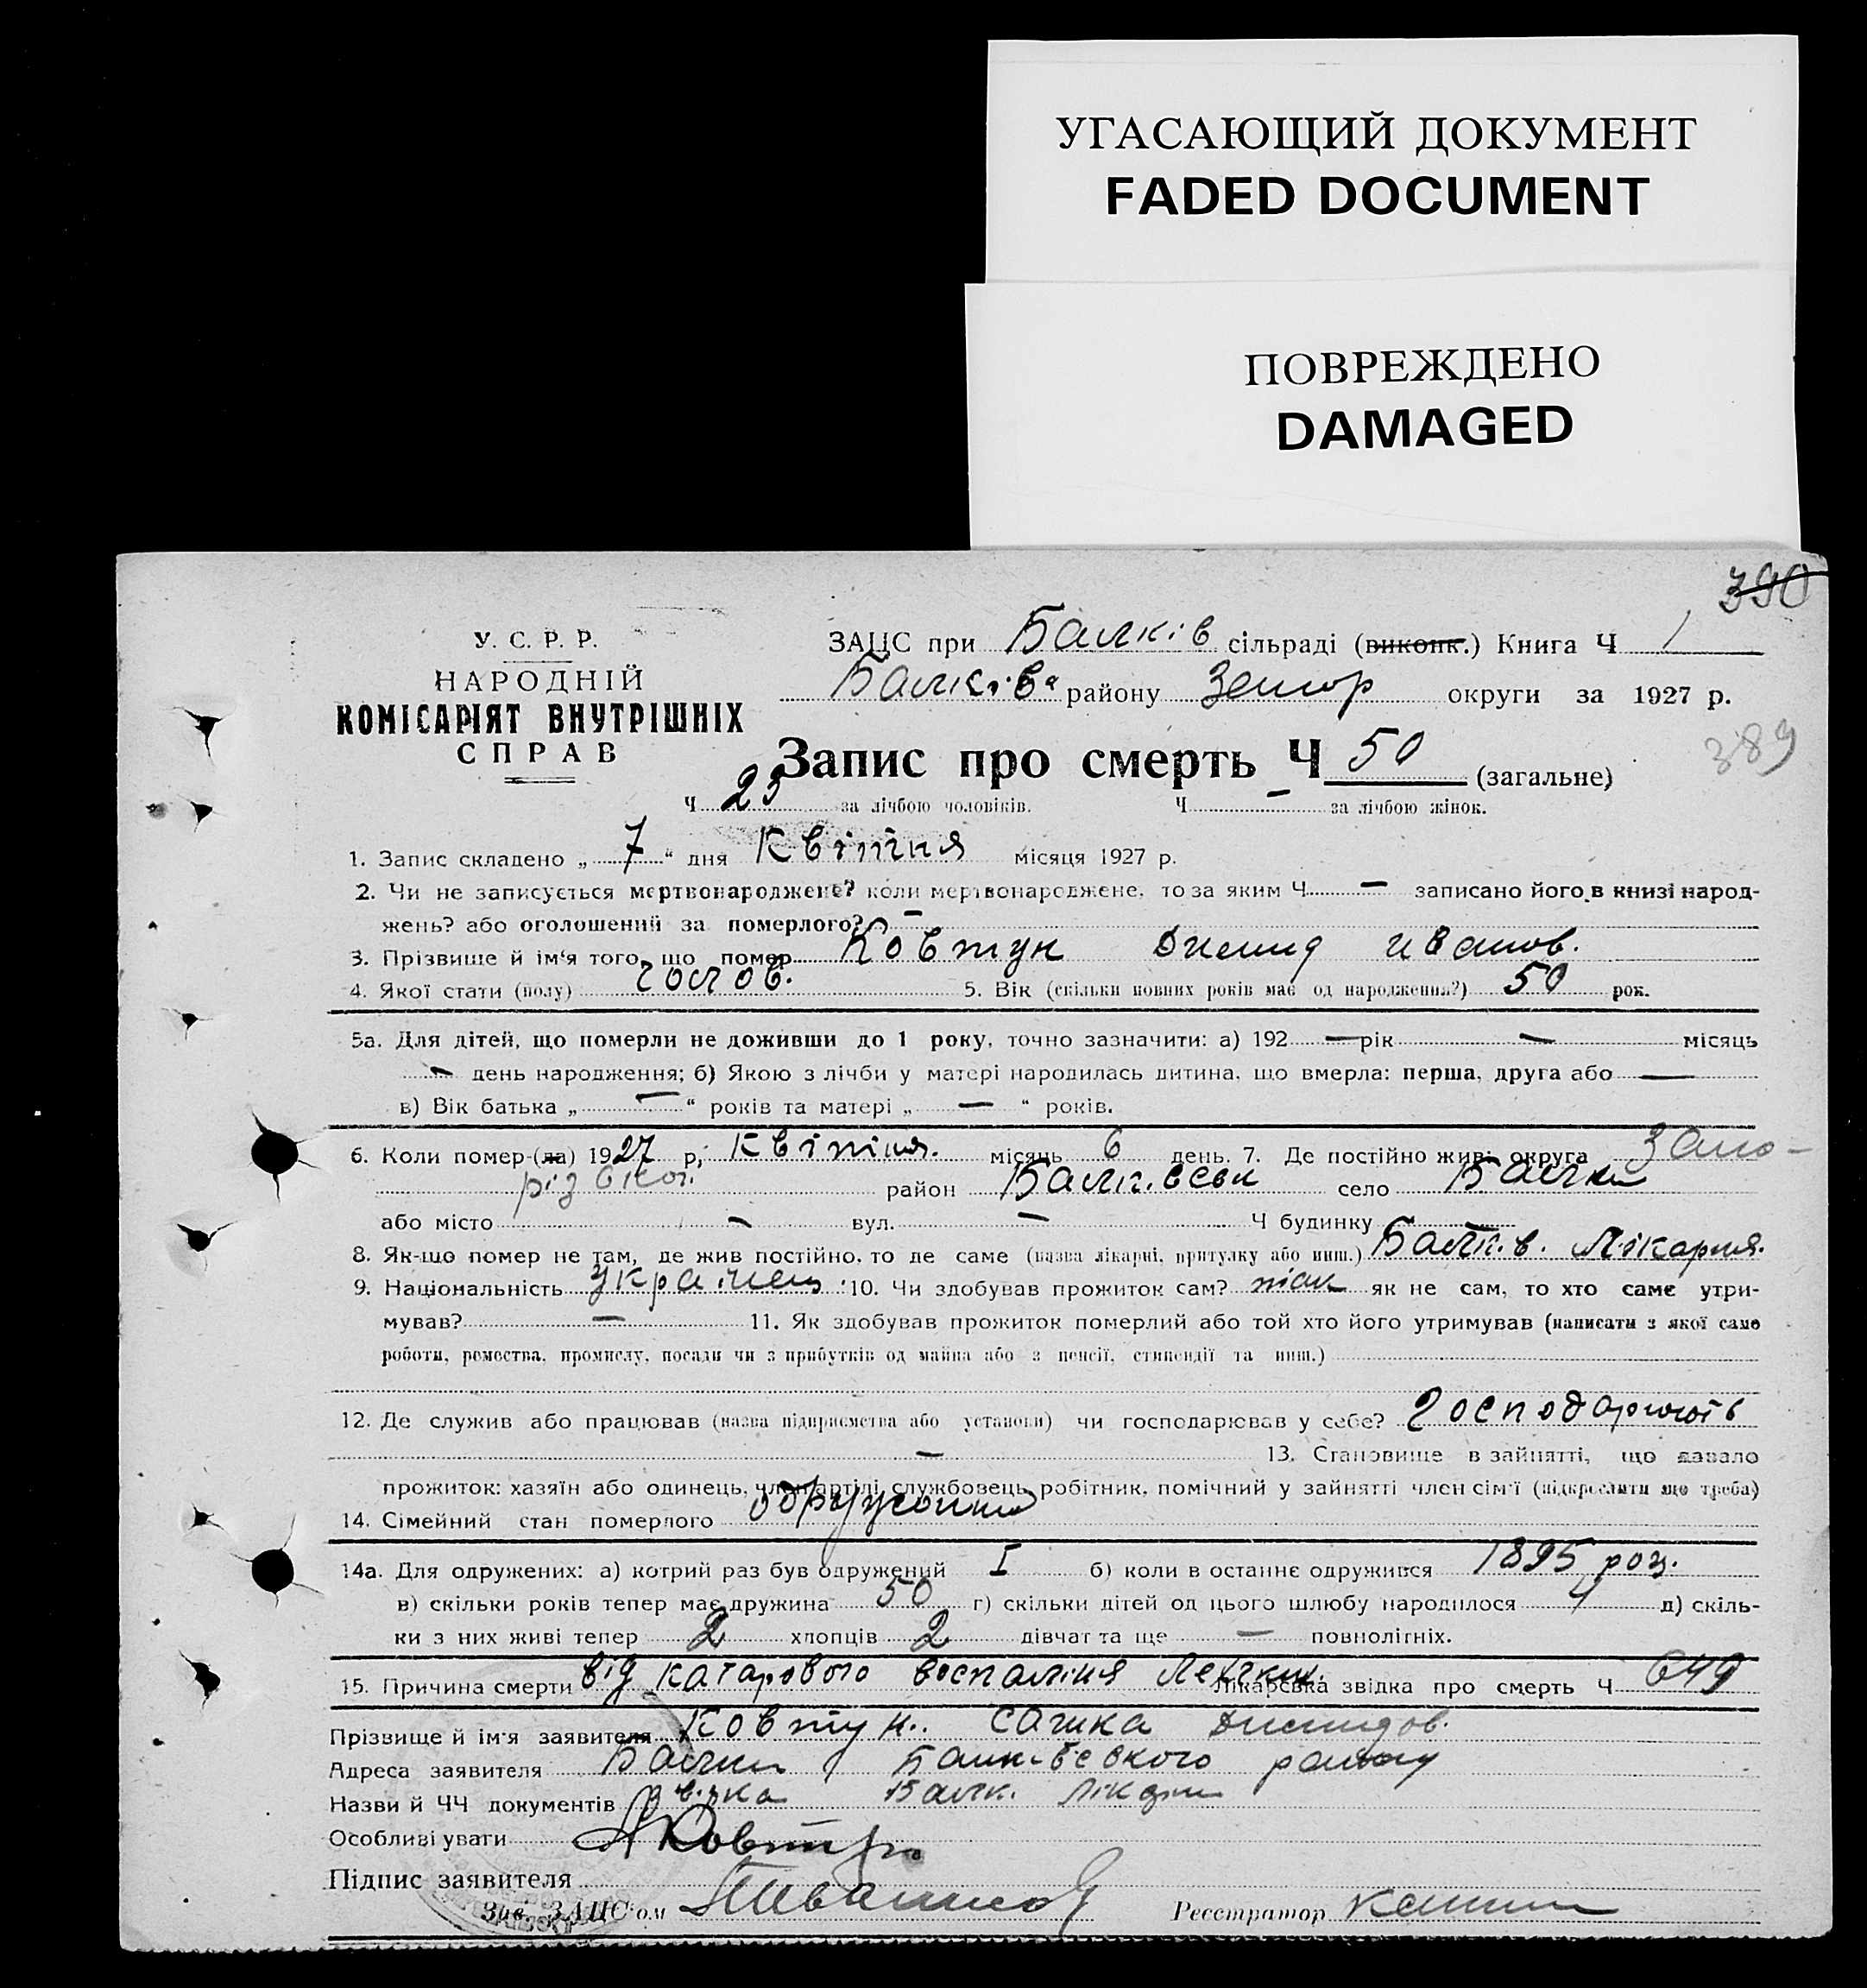 УГАСАЮЩИЙ ДОКУМЕНТ
FADED DOCUMENT
ПОВРЕЖДЕНО
DAMAGED
390
У. С. Р. Р.
НАРОДНІЙ
КОМІСАРІЯТ ВНУТРІШНІХ
СПРАВ
ЗАЦС при Балків сільраді (виконк.) Книга Ч 1
Балків району Запор округи за 1927 р.
389
Запис про смерть Ч 50 (загальне)
Ч 23 за лічбою чоловіків. Ч — за лічбою жінок.
1. Запис складено „ 7 “ дня Квітня місяця 1927 р.
2. Чи не записується мертвонароджене? коли мертвонароджене, то за яким Ч — записано його в книзі народ-
жень? або оголошений за померлого? —
3. Прізвище й ім'я того, що помер Ковтун Диомид иванов.
4. Якої стати (полу) чолов. 5. Вік (скільки повних років має од народження?) 50 рок.
5а. Для дітей, що померли не доживши до 1 року, точно зазначити: а) 192 — рік — місяць
— день народження; б) Якою з лічби у матері народилась дитина, що вмерла: перша, друга або —
в) Вік батька „ — “ років та матері „ — “ років.
6. Коли помер-(ла) 1927 р, Квітня. місяць 6 день. 7. Де постійно жив: округа Запо-
різької район село Балки
або місто — вул. — Ч будинку
8. Як-що помер не там, де жив постійно, то де саме (назва лікарні, притулку або инш.) Балк.в. Лікарня.
9. Національність украінец 10. Чи здобував прожиток сам? так як не сам, то хто саме утри-
мував? — 11. Як здобував прожиток померлий або той хто його утримував (написати з якої саме
роботи, ремества, промислу, посади чи з прибутків од майна або з пенсії, стипендії та инш.)
12. Де служив або працював (назва підприємства або установи) чи господарював у себе?
— 13. Становище в зайнятті, що давало
прожиток: хазяїн або одинець, член артілі службовець, робітник, помічний у зайнятті член сім'ї (підкреслити що треба)
14. Сімейний стан померлого
14а. Для одружених: а) котрий раз був одружений I б) коли в останнє одружився 1895 роц.
в) скільки років тепер має дружина 50 г) скільки дітей од цього шлюбу народилося 4 д) скіль-
ки з них живі тепер 2 хлопців 2 дівчат та ще — повнолітніх.
15. Причина смерти від катарового воспаліня Легких. Лікарська звідка про смерть Ч 649
Прізвище й ім'я заявителя Ковтун. Сашка Диомидов.
Адреса заявителя Балки району
Назви й ЧЧ документів Балк. Лікарн
Особливі уваги
Підпис заявителя
Зав. ЗАЦС'ом
Реєстратор